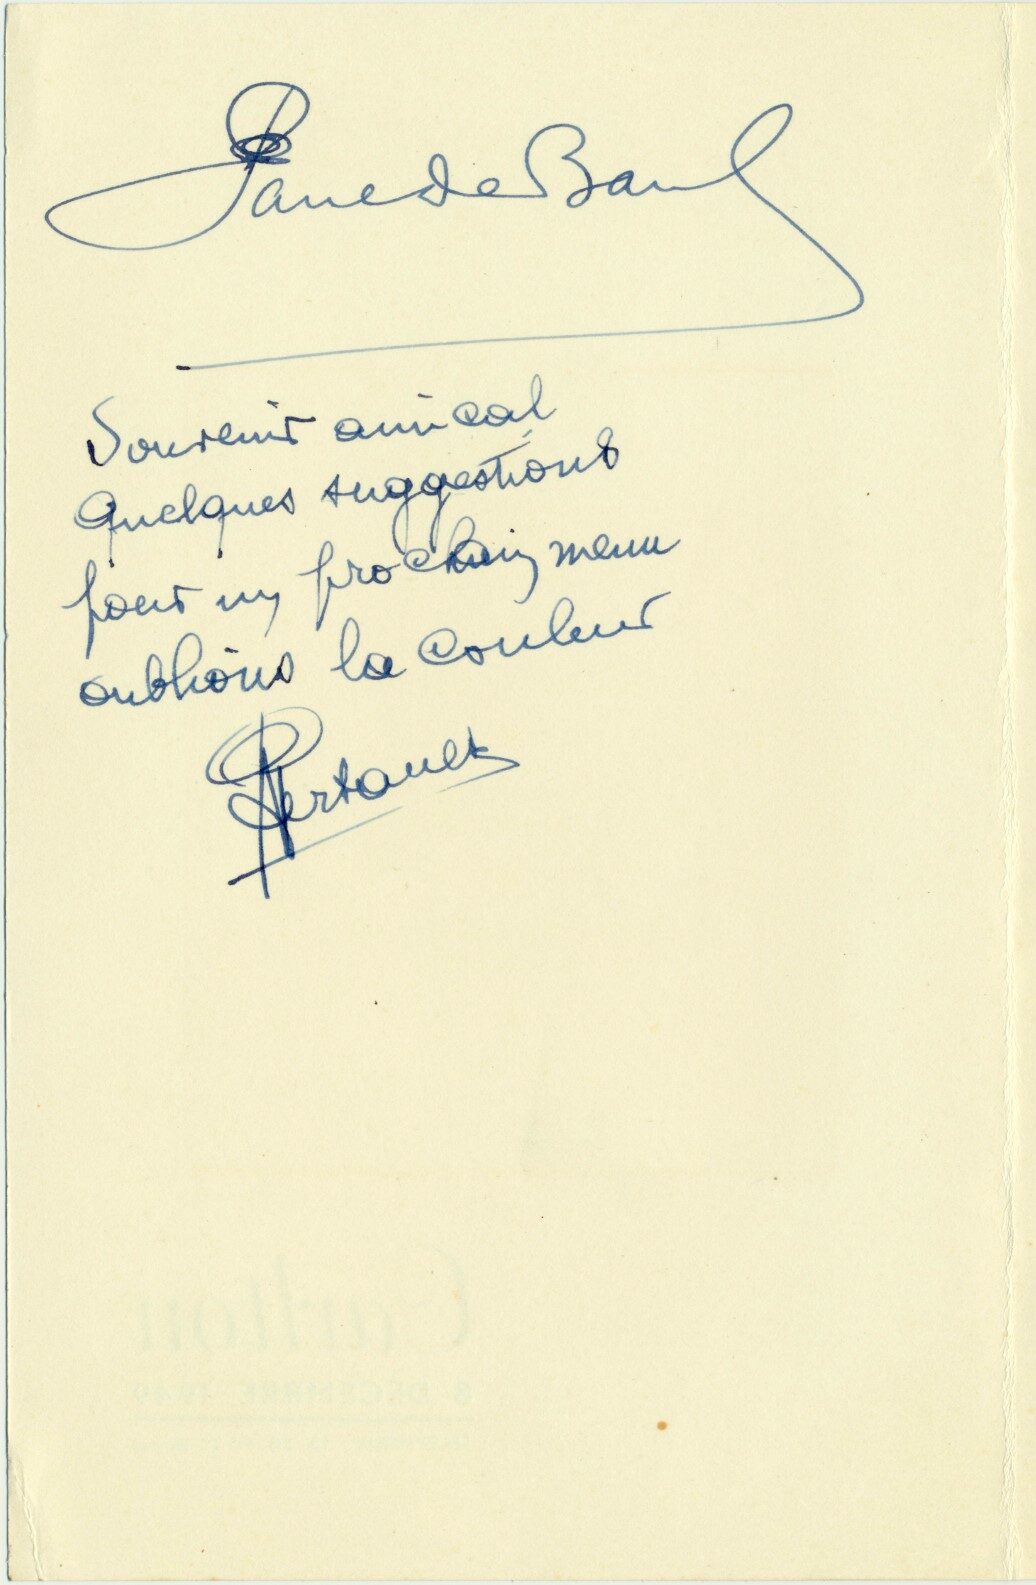 Jane de Banl
Souvenir amical
Quelques suggestions
pour un prochain menu
oublions la couleur
Carlton
8 DÉCEMBRE 1949